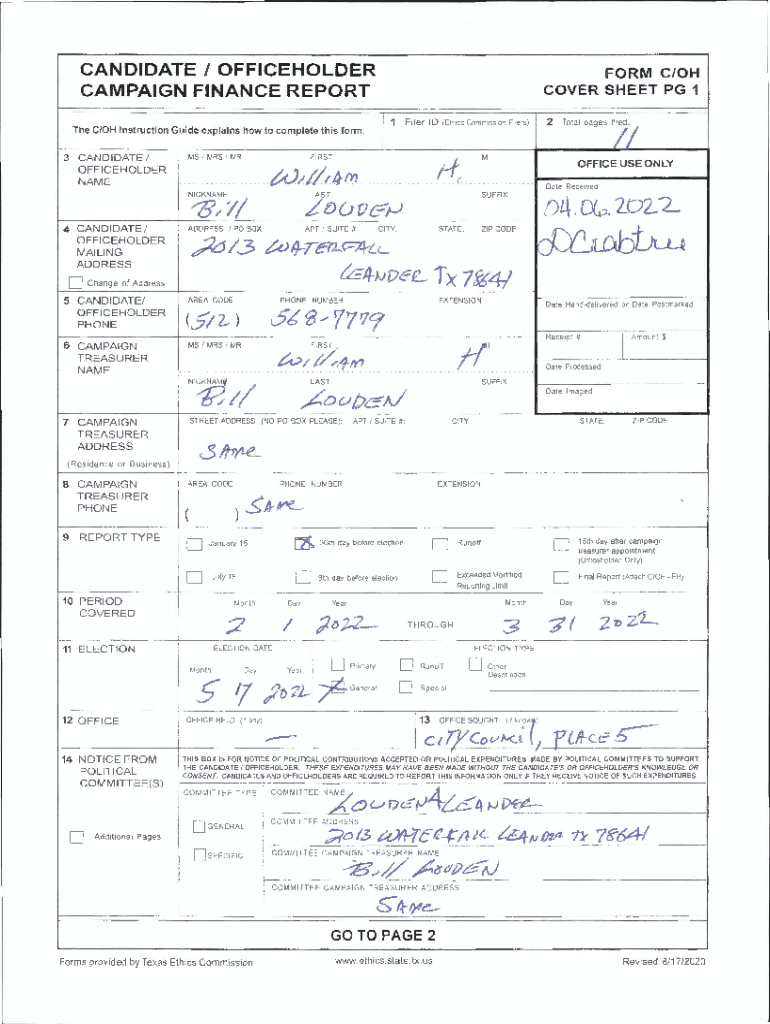 CANDIDATE / OFFICEHOLDER
CAMPAIGN FINANCE REPORT
FORM C/OH
COVER SHEET PG 1
The C/OH Instruction Guide explains how to complete this form.
1 Filer ID (Ethics Commission Filers)
2 Total pages filed:
11
3 CANDIDATE / OFFICEHOLDER NAME
MS / MRS / MR FIRST MI
William H.
NICKNAME LAST SUFFIX
Bill LOUDEN
OFFICE USE ONLY
Date Received
04.06.2022
DCrabtree
4 CANDIDATE / OFFICEHOLDER MAILING ADDRESS
Change of Address
ADDRESS / PO BOX APT / SUITE # CITY. STATE. ZIP CODE
2013 WATERFALL
LEANDER Tx 78641
5 CANDIDATE/ OFFICEHOLDER PHONE
AREA CODE PHONE NUMBER EXTENSION
(512) 568-7779
Date Hand-delivered or Date Postmarked
Receipt # Amount $
Date Processed
Date Imaged
6 CAMPAIGN TREASURER NAME
MS / MRS / MR FIRST MI
William H
NICKNAME LAST SUFFIX
Bill LOUDEN
7 CAMPAIGN TREASURER ADDRESS
(Residence or Business)
STREET ADDRESS (NO PO BOX PLEASE); APT / SUITE #; CITY STATE. ZIP CODE
SAme
8 CAMPAIGN TREASURER PHONE
AREA CODE PHONE NUMBER EXTENSION
( ) SAme
9 REPORT TYPE
January 15 30th day before election Runoff 15th day after campaign treasurer appointment (Officeholder Only)
July 15 8th day before election Exceeded Modified Reporting Limit Final Report (Attach C/OH - FR)
10 PERIOD COVERED
Month Day Year Month Day Year
2 1 2022 THROUGH 3 31 2022
11 ELECTION
ELECTION DATE ELECTION TYPE
Month Day Year
5 7 2022
Primary Runoff Other Description
General Special
12 OFFICE
OFFICE HELD (if any)
—
13 OFFICE SOUGHT (if known)
CITY COUNCIL, PLACE 5
14 NOTICE FROM POLITICAL COMMITTEE(S)
THIS BOX IS FOR NOTICE OF POLITICAL CONTRIBUTIONS ACCEPTED OR POLITICAL EXPENDITURES MADE BY POLITICAL COMMITTEES TO SUPPORT
THE CANDIDATE / OFFICEHOLDER. THESE EXPENDITURES MAY HAVE BEEN MADE WITHOUT THE CANDIDATE'S OR OFFICEHOLDER'S KNOWLEDGE OR
CONSENT. CANDIDATES AND OFFICEHOLDERS ARE REQUIRED TO REPORT THIS INFORMATION ONLY IF THEY RECEIVE NOTICE OF SUCH EXPENDITURES
Additional Pages
COMMITTEE TYPE
GENERAL
SPECIFIC
COMMITTEE NAME
LOUDEN4LEANDER
COMMITTEE ADDRESS
2013 WATERFALL LEANDER TX 78641
COMMITTEE CAMPAIGN TREASURER NAME
Bill LOUDEN
COMMITTEE CAMPAIGN TREASURER ADDRESS
SAme
GO TO PAGE 2
Forms provided by Texas Ethics Commission
www.ethics.state.tx.us
Revised 8/17/2020